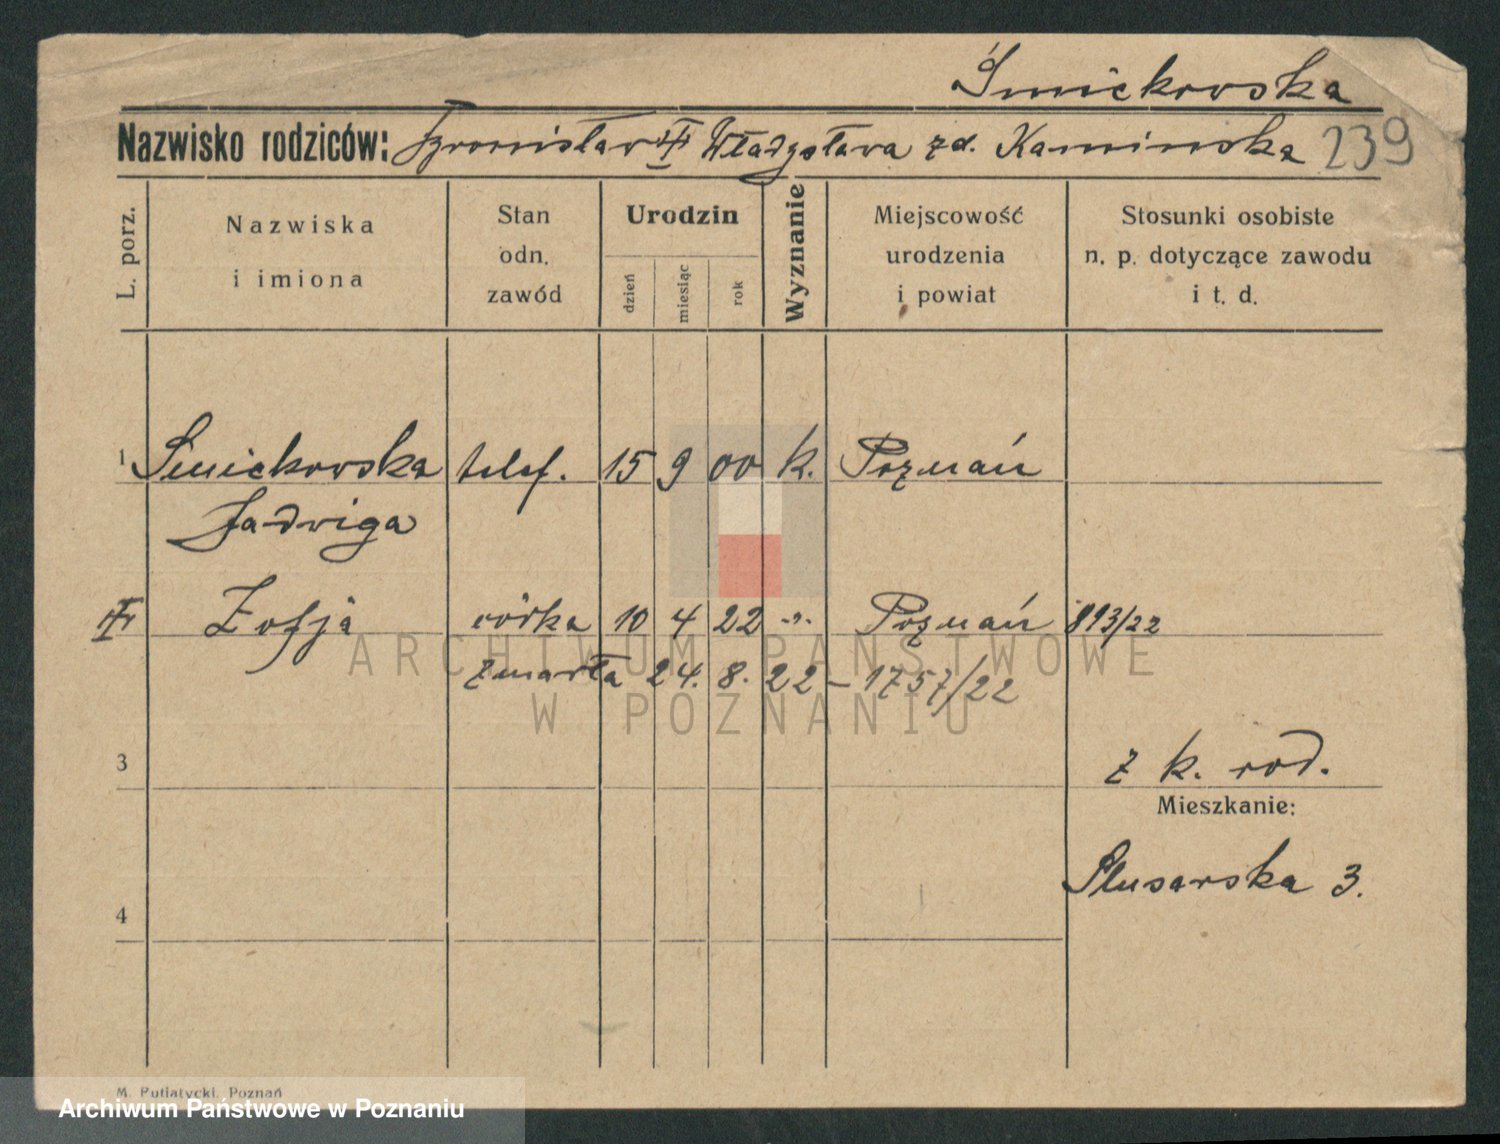 Śmiekowska
Nazwisko rodziców: Bronisław Władysława zd. Kamińska 239
L. porz.
Nazwiska
i imiona
Stan
odn.
zawód
Urodzin
dzień
miesiąc
rok
Wyznanie
Miejscowość
urodzenia
i powiat
Stosunki osobiste
n. p. dotyczące zawodu
i t. d.
1 Śmiekowska telef. 15 9 00 k. Poznań
Jadwiga
Zofja córka 10 4 22 -"- Poznań 893/22
zmarła 24. 8. 22 – 1757/22
ARCHIWUM PAŃSTWOWE
W POZNANIU
3
z k. rod.
Mieszkanie:
Ślusarska 3.
4
M. Putiatycki, Poznań
Archiwum Państwowe w Poznaniu